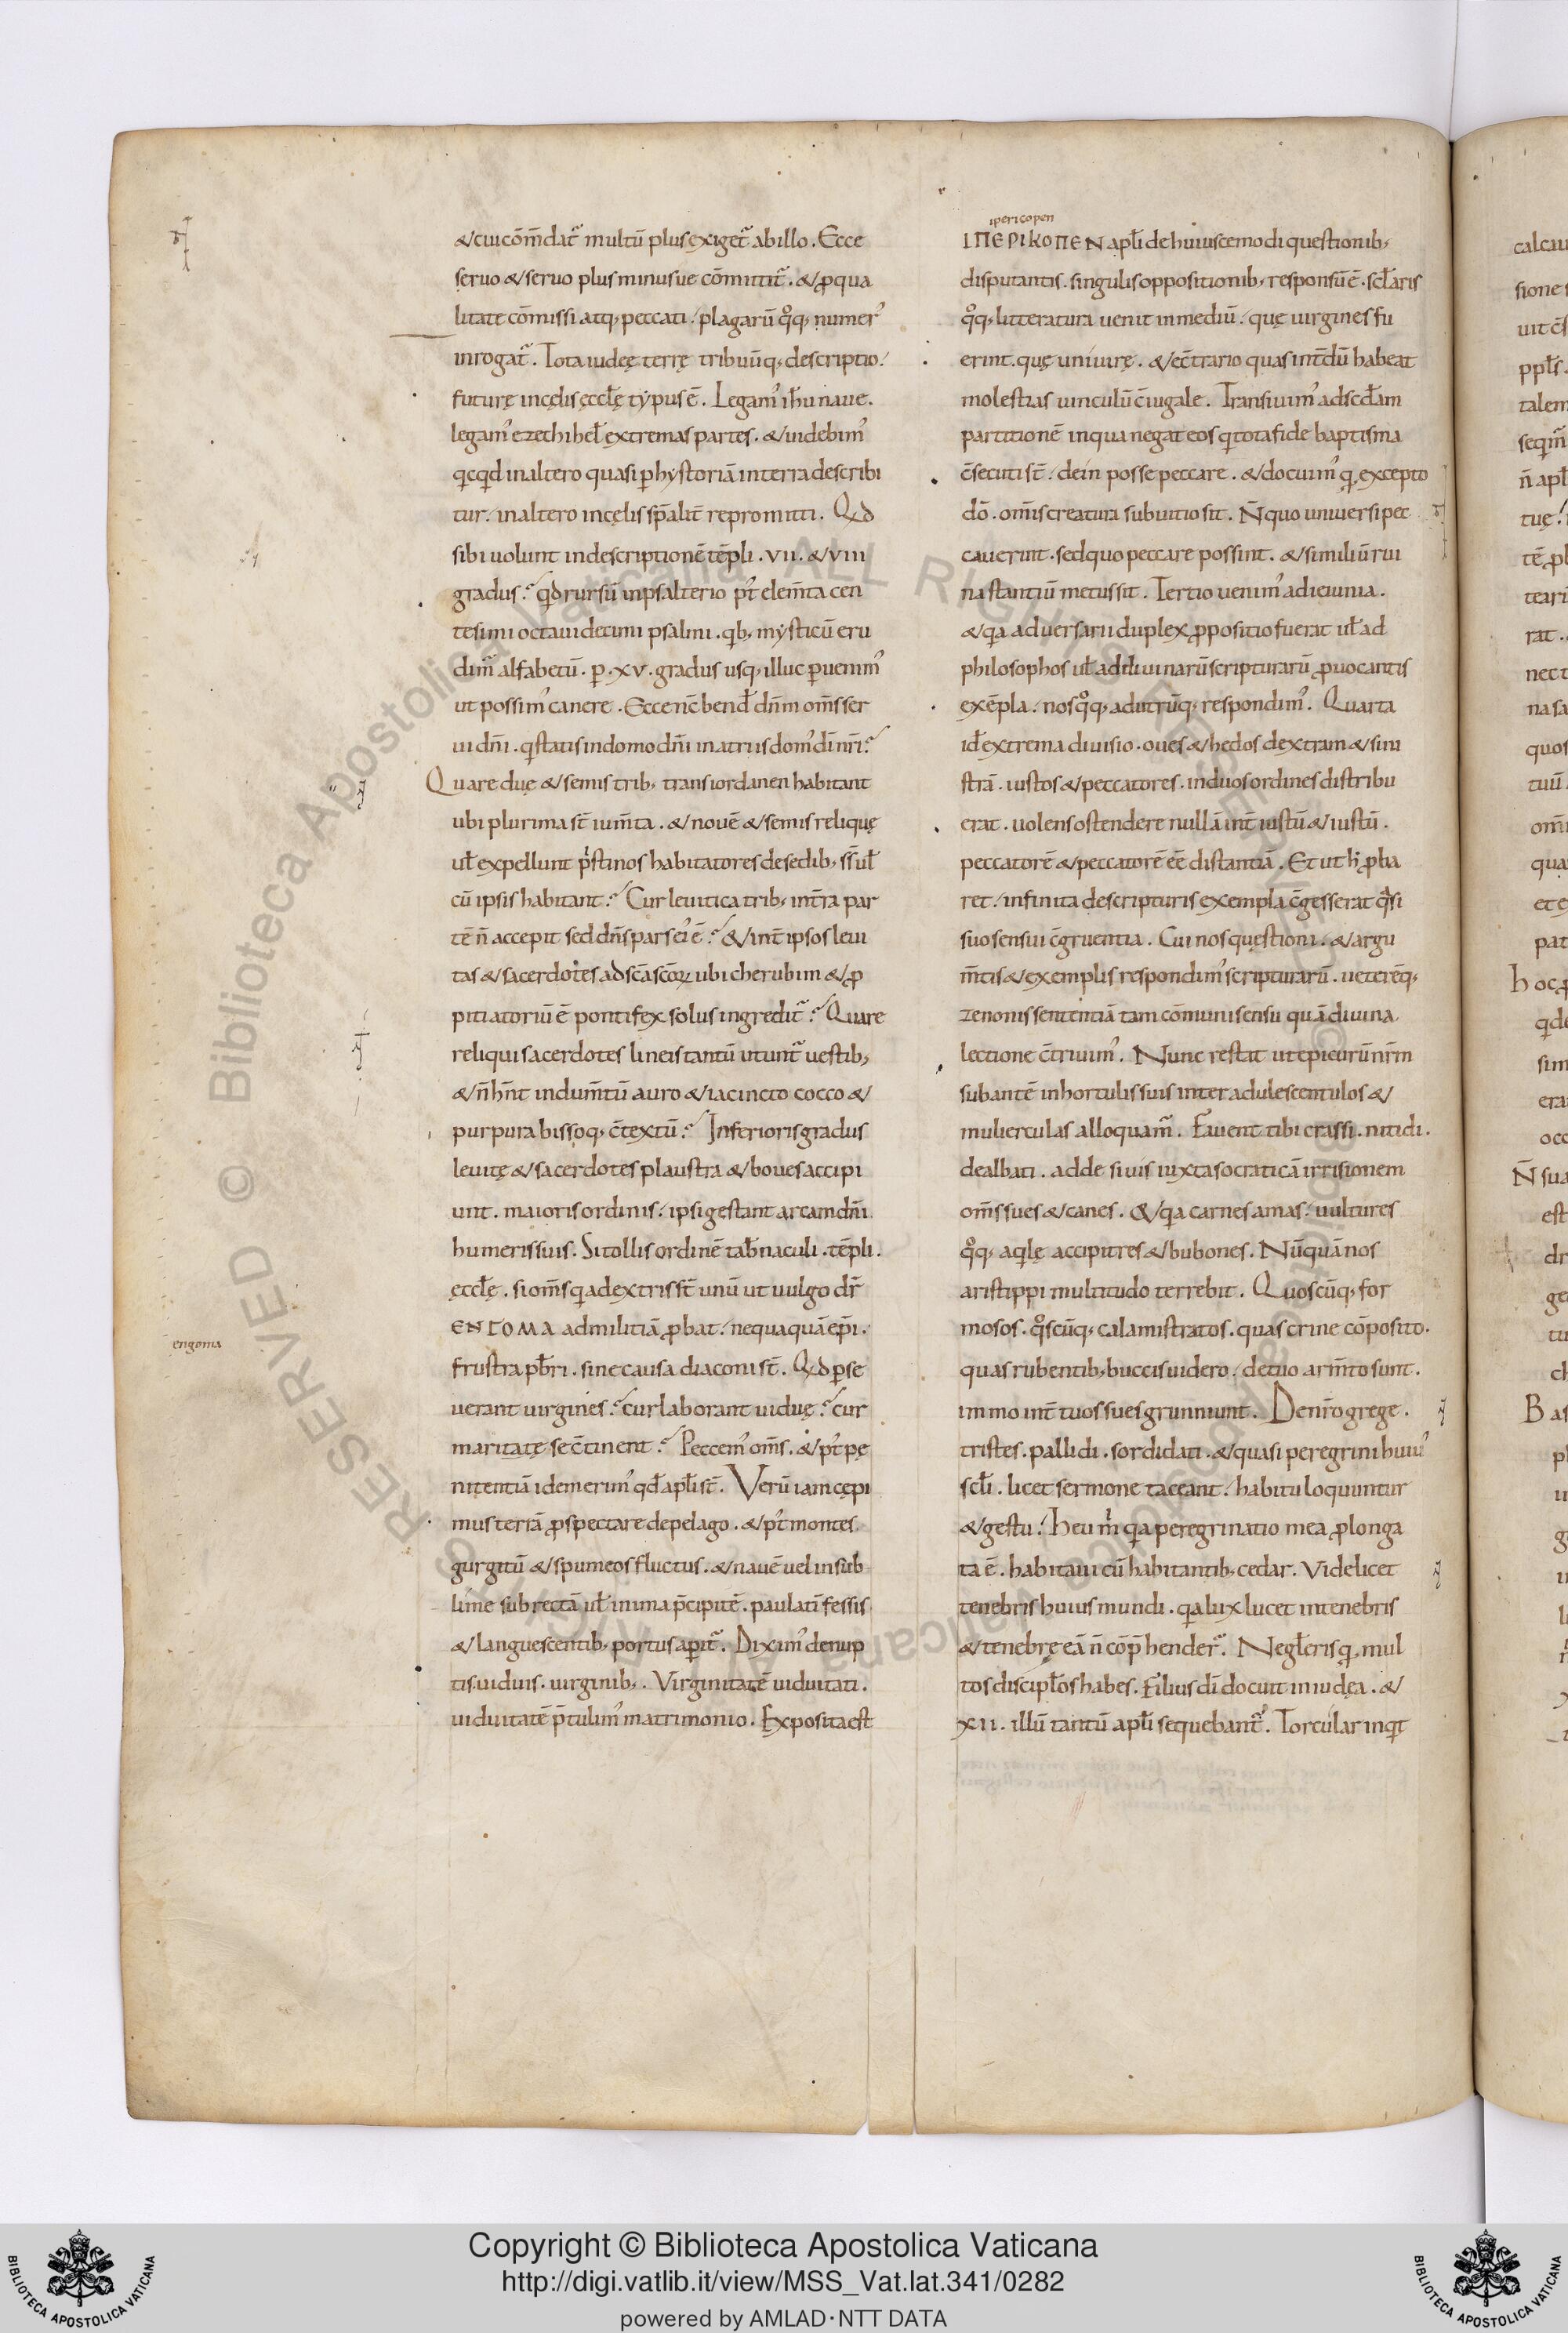 iperi copen
& cui cōm̄datr̄ multū plus exigetr̄ ab illo. Ecce
seruo & seruo plus minusue cōmittitr̄. & ꝓ qua
litate cōmissi atq; peccati / plagarū qͦq; numer᾿
inrogatr̄. Tota iudeę terrę tribuūq; descriptio /
futurę in cęlis ęccl̄ę typus ē. Legam᾿ ihū naue.
legam᾿ ezechihel̄ extremas partes. & uidebim᾿
qicqid in altero quasi ꝑ hystoriā in terra describi
tur / in altero in cęlis sp̄alit̄ repromitti. Qd
sibi uolunt in descriptionē tēpli. VII. & VIII
gradus? qd rursū in psalterio p᾿t elem̄ta cen
tesimi octaui decimi psalmi. qb; mysticū eru
dimr̄ alfabetū. ꝑ. XV. gradus usq; illuc ꝑuenim᾿
ut possim᾿ canere. Ecce nc̄ bend̄ dn̄m om̄s ser
ui dn̄i. qi statis in domo dn̄i in atriis dom᾿ dī nr̄i?
Quare duę & semis trib; trans iordanen habitant
ubi plurima st̄ ium̄ta. & nouē & semis reliquę
ul̄ expellunt pͥstinos habitatores de sedib; ss̄ ul̄
cū ipsis habitant? Cur leuitica trib; int̄ra par
tē n̄ accepit sed dn̄s pars ei᾿ ē? & int̄ ipsos leui
tas & sacerdotes ad sc̄a sc̄oꝝ ubi cherubim & ꝓ
pitiatoriū ē pontifex solus ingreditr̄? Quare
reliqui sacerdotes lineis tantū utuntr̄ uestib;
& n̄ hn̄t indum̄tū auro & iacincto cocco &
purpura bissoq; c̄textū? Inferioris gradus
leuitę & sacerdotes plaustra & boues accipi
unt. maioris ordinis / ipsi gestant arcam dn̄i
humeris suis. Si tollis ordinē tab̄naculi. tēpli.
ęccl̄ę. si om̄s qi a dextris st̄ unū ut uulgo dr̄
ENГOMA ad militiā ꝓbat / nequaquā ep̄i.
engoma
frustra pb̄ri. sine causa diaconi st̄. Qd ꝑse
uerant uirgines? cur laborant uiduę? cur
maritatę se c̄tinent? Peccem᾿ om̄s. & p᾿t pę
nitentiā idem erim᾿ qd̄ apl̄i st̄. Verū iam cępi
mus teriā ꝓspectare de pelago. & p᾿t montes
gurgitū & spumeos fluctus. & nauē uel in sub
lime subrectā ul̄ in ima p̄cipitē. paulatī fessis
& languescentib; portus aꝑitr̄. Dixim᾿ de nup
tis uiduis. uirginib;. Virginitatē uiduitati.
uiduitatē p̄tulim᾿ matrimonio. Exposita est
IΠEPIKOΠEN apl̄i de huiuscemodi questionib;
disputantis. singulis oppositionib; responsū ē. scl̄aris
qͦq; litteratura uenit in mediū / quę uirgines fu
erint. quę uniuirę. & ec̄trario quas int̄dū habeat
molestias uinculū c̄iugale. Transiuim᾿ ad scd̄am
partitionē in qua negat eos qi tota fide baptisma
c̄secuti st̄ / dein posse peccare. & docuim᾿ qi excepto
dō. om̄is creatura sub uitio sit. N̄ quo uniuersi pec
cauerint. sed quo peccare possint. & similiū rui
na stantiū metus sit. Tertio uenim᾿ ad ieiunia.
& qia aduersarii duplex ꝓpositio fuerat ul̄ ad
philosophos ul̄ ad diuinarū scripturarū ꝓuocantis
exēpla / nos qͦq; ad utrūq; respondim᾿. Quarta
id̄ extrema diuisio. oues & hedos dextram & sini
strā. iustos & peccatores. in duos ordines distribu
erat. uolens ostendere nullā int̄ iustū & iustū.
peccatorē & peccatorē eē distantiā. Et ut h᾿ ꝓba
ret / infinita de scripturis exempla c̄gesserat qͣsi
suo sensui c̄gruentia. Cui nos quęstioni. & argu
m̄tis & exemplis respondim᾿ scripturarū. ueterēq;
zenonis sententiā tam cōmuni sensu quā diuina
lectione c̄triuim᾿. Nunc restat ut epicurū nr̄m
subantē in hortulis suis inter adulescentulos &
mulierculas alloquamr̄. Fauent tibi crassi. nitidi.
dealbati. adde si uis iuxta socraticā irrisionem
om̄s sues & canes. & qia carnes amas / uultures
qͦq; aqilę accipitres & bubones. Nūquā nos
aristippi multitudo terrebit. Quoscūq; for
mosos. qͦscūq; calamistratos. quas crine cōposito.
quas rubentib; buccis uidero / de tuo arm̄to sunt.
immo int̄ tuos sues grunniunt. De nr̄o grege.
tristes. pallidi. sordidati. & quasi peregrini huiu᾿
scl̄i. licet sermone taceant / habitu loquuntur
& gestu / Heu mͥ qia peregrinatio mea ꝓlonga
ta ē. habitaui cū habitantib; cedar. Videlicet
tenebris huius mundi. qia lux lucet in tenebris
& tenebrę eā n̄ cōp̄hender᾿. Negl̄eris qi mul
tos discipl̄os habes. Filius dī docuit in iudęa. &
XII. illū tantū apl̄i sequebantr̄. Torcular inqit
Copyright © Biblioteca Apostolica Vaticana
http://digi.vatlib.it/view/MSS_Vat.lat.341/0282
powered by AMLAD·NTT DATA
BIBLIOTECA APOSTOLICA VATICANA
BIBLIOTECA APOSTOLICA VATICANA